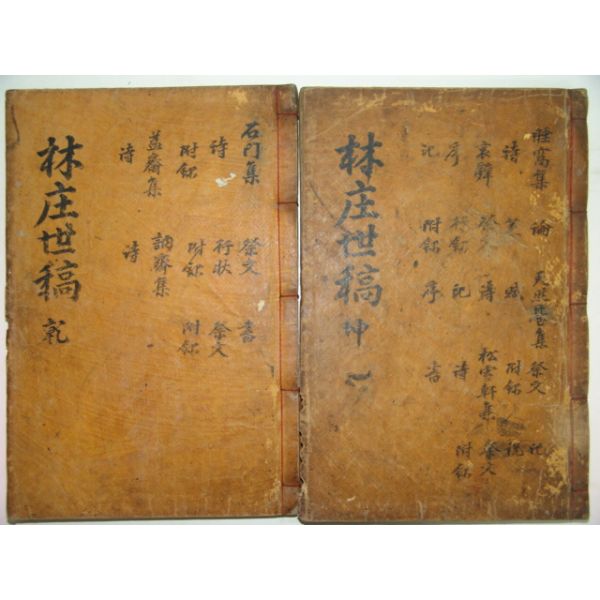 林庄世稿 乾
石門集 祭文 書
詩 行狀 祭文
附錄 附錄 附錄
益齋集 訥齋集
詩 詩
林庄世稿 坤
論 祭文
詩 附錄 祝
哀辭 祭文 詩 松雲軒集 祭文
序 行錄 記 詩 附錄
記 附錄 序 書